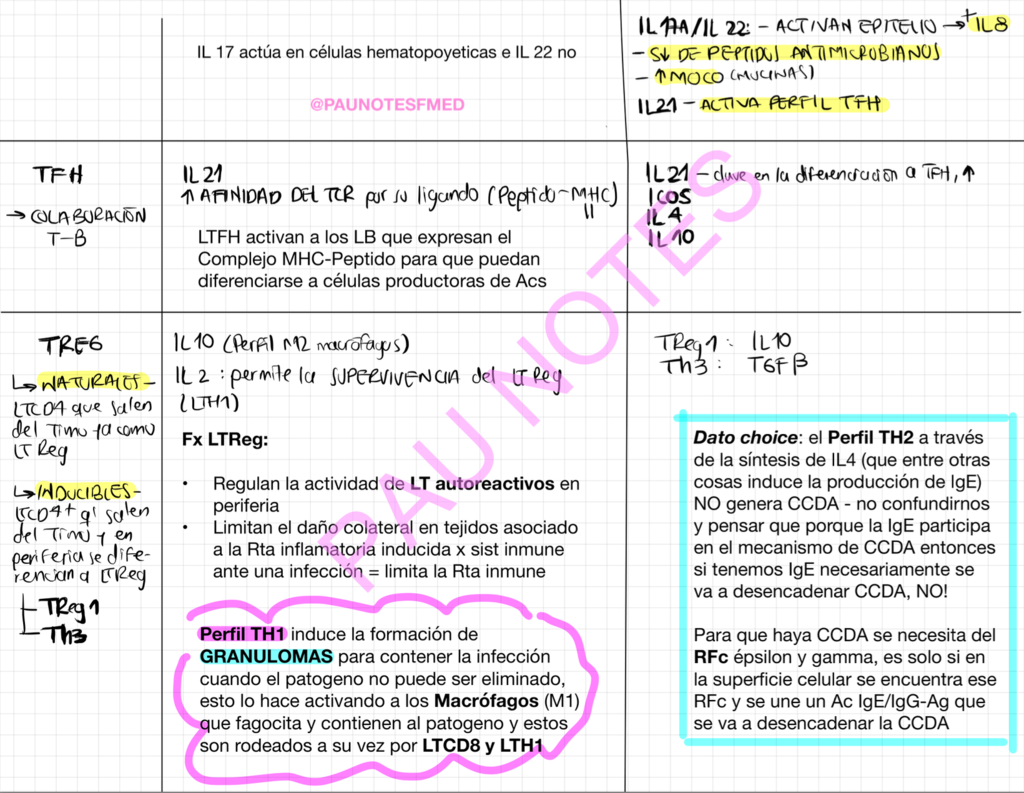 IL 17 actúa en células hematopoyeticas e IL 22 no
@PAUNOTESFMED
IL17A/IL 22: - ACTIVAN EPITELIO → + IL8
- S↓ DE PEPTIDOS ANTIMICROBIANOS
- ↑ MOCO (MUCINAS)
IL21 - ACTIVA PERFIL TFH
TFH
→ COLABORACIÓN
T-B
IL21
↑ AFINIDAD DEL TCR por su ligando (Peptido-MHC)
II
LTFH activan a los LB que expresan el
Complejo MHC-Peptido para que puedan
diferenciarse a células productoras de Acs
IL21 - clave en la diferenciación a TFH, ↑
ICOS
IL4
IL10
TREG
↳ NATURALES-
LTCD4 que salen
del Timo ya como
LT Reg
↳ INDUCIBLES-
LTCD4+ q' salen
del Timo y en
periferia se dife-
rencian a LTReg
TReg1
Th3
IL10 (Perfil M2 macrofagos)
IL2 : permite la SUPERVIVENCIA del LT Reg
(LTH1)
Fx LTReg:
• Regulan la actividad de LT autoreactivos en
periferia
• Limitan el daño colateral en tejidos asociado
a la Rta inflamatoria inducida x sist inmune
ante una infección = limita la Rta inmune
Perfil TH1 induce la formación de
GRANULOMAS para contener la infección
cuando el patogeno no puede ser eliminado,
esto lo hace activando a los Macrófagos (M1)
que fagocita y contienen al patogeno y estos
son rodeados a su vez por LTCD8 y LTH1
TReg1 : IL10
Th3 : TGFβ
Dato choice: el Perfil TH2 a través
de la síntesis de IL4 (que entre otras
cosas induce la producción de IgE)
NO genera CCDA - no confundirnos
y pensar que porque la IgE participa
en el mecanismo de CCDA entonces
si tenemos IgE necesariamente se
va a desencadenar CCDA, NO!
Para que haya CCDA se necesita del
RFc épsilon y gamma, es solo si en
la superficie celular se encuentra ese
RFc y se une un Ac IgE/IgG-Ag que
se va a desencadenar la CCDA
PAU NOTES